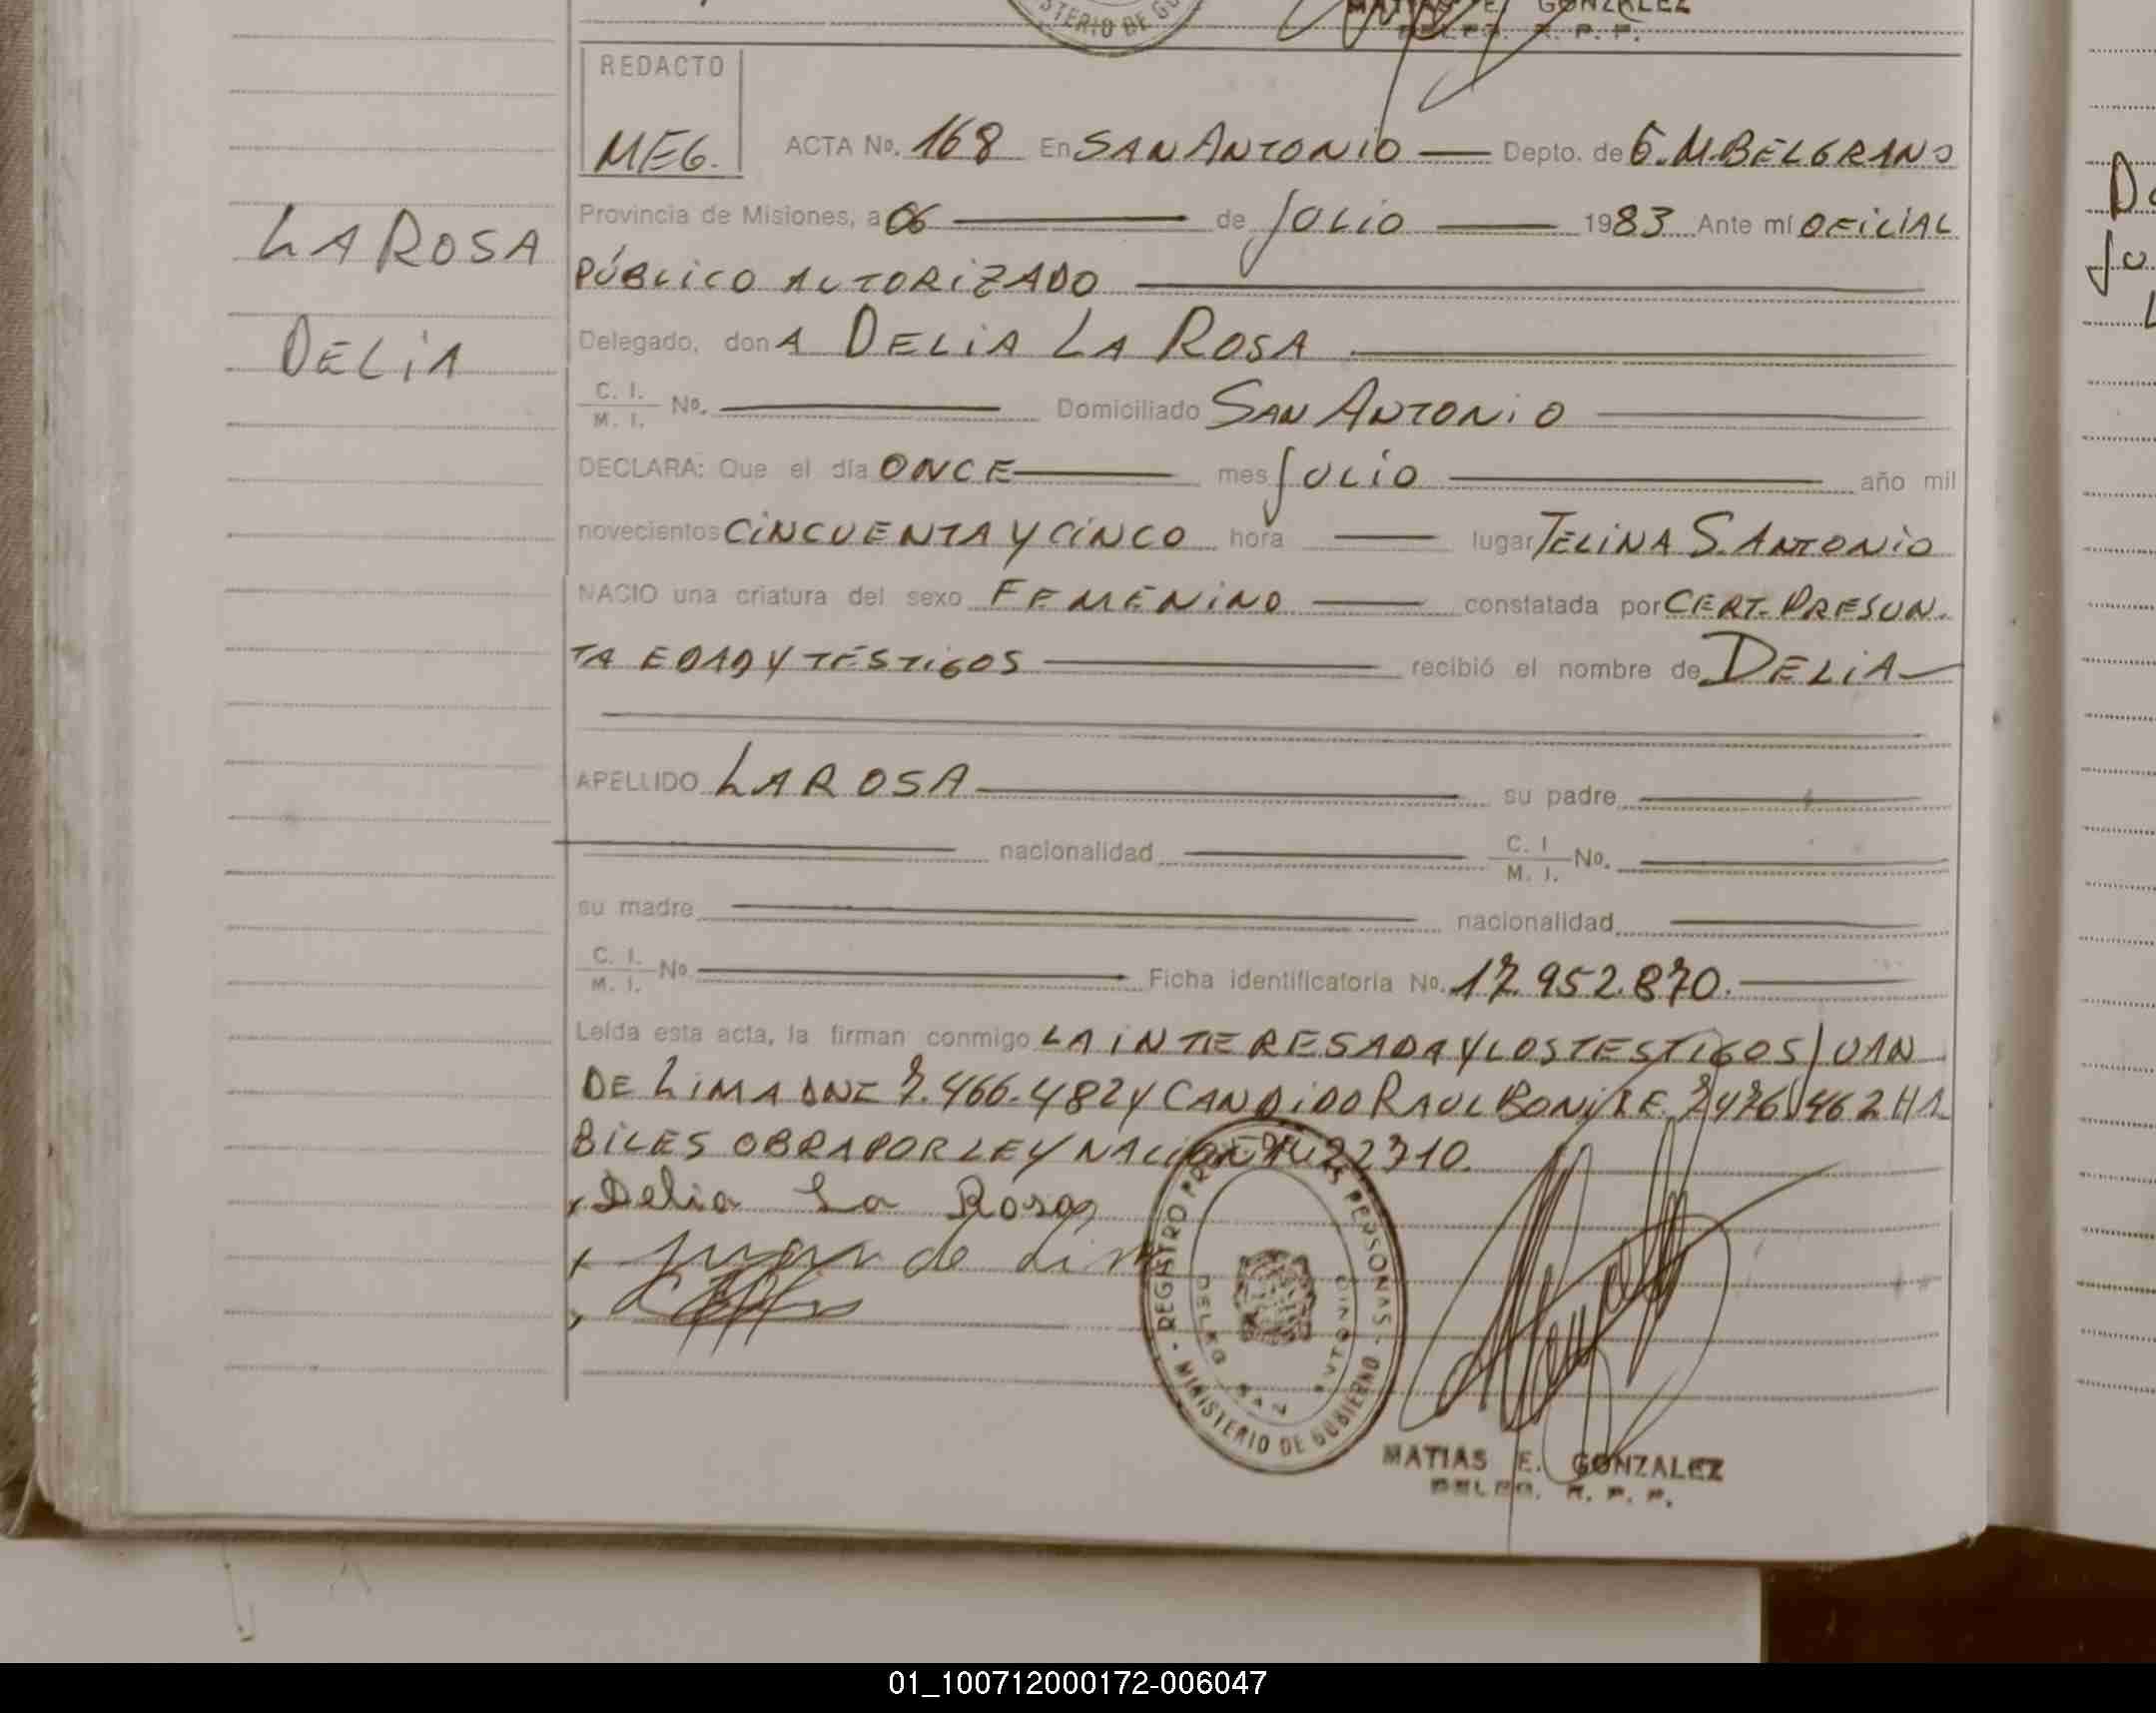 MINISTERIO DE GO
MATIAS E. GONZALEZ
DELEG. R. P. P.
REDACTO
MEG.
ACTA No. 168 En SAN ANTONIO — Depto. de G. M. BELGRANO
Provincia de Misiones, a 06 — de JULIO — 1983 Ante mí OFICIAL
PÚBLICO AUTORIZADO
Delegado, don A DELIA LA ROSA
C. I.
M. I. No. — Domiciliado SAN ANTONIO
DECLARA: Que el día ONCE — mes JULIO — año mil
novecientos CINCUENTA Y CINCO hora — lugar TELINA S. ANTONIO
NACIO una criatura del sexo FEMENINO — constatada por CERT. PRESUN-
TA EDAD Y TESTIGOS — recibió el nombre de DELIA
APELLIDO LA ROSA — su padre
nacionalidad — C. I.
M. I. No.
su madre — nacionalidad
C. I.
M. I. No — Ficha identificatoria No. 17.952.870.
Leída esta acta, la firman conmigo LA INTERESADA Y LOS TESTIGOS JUAN
DE LIMA DNI 7.466.482 Y CANDIDO RAUL 7.476.462 HA
BILES OBRA POR LEY NACION 22310.
x Delia La Rosa
x Juan de Lima
REGISTRO PROVINCIAL DE LAS PERSONAS - MINISTERIO DE GOBIERNO -
DELEG. SAN ANTONIO
MATIAS E. GONZALEZ
DELEG. R. P. P.
LA ROSA
DELIA
01_100712000172-006047